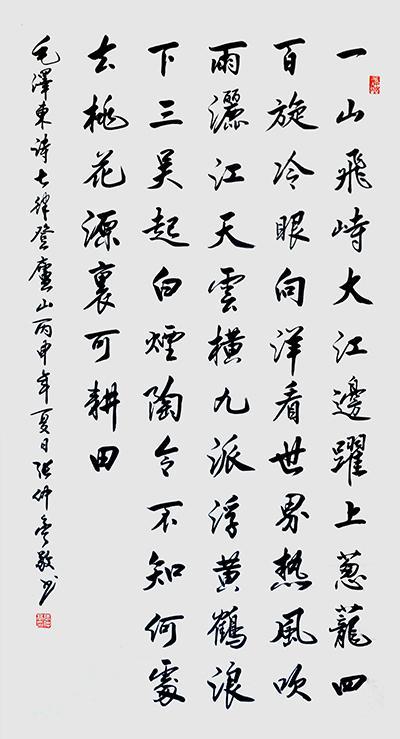 一山飛峙大江邊躍上葱蘢四
百旋冷眼向洋看世界熱風吹
雨灑江天雲橫九派浮黄鶴浪
下三吴起白煙陶令不知何處
去桃花源裏可耕田
毛澤東詩七律登廬山丙申年夏日张仲敬书